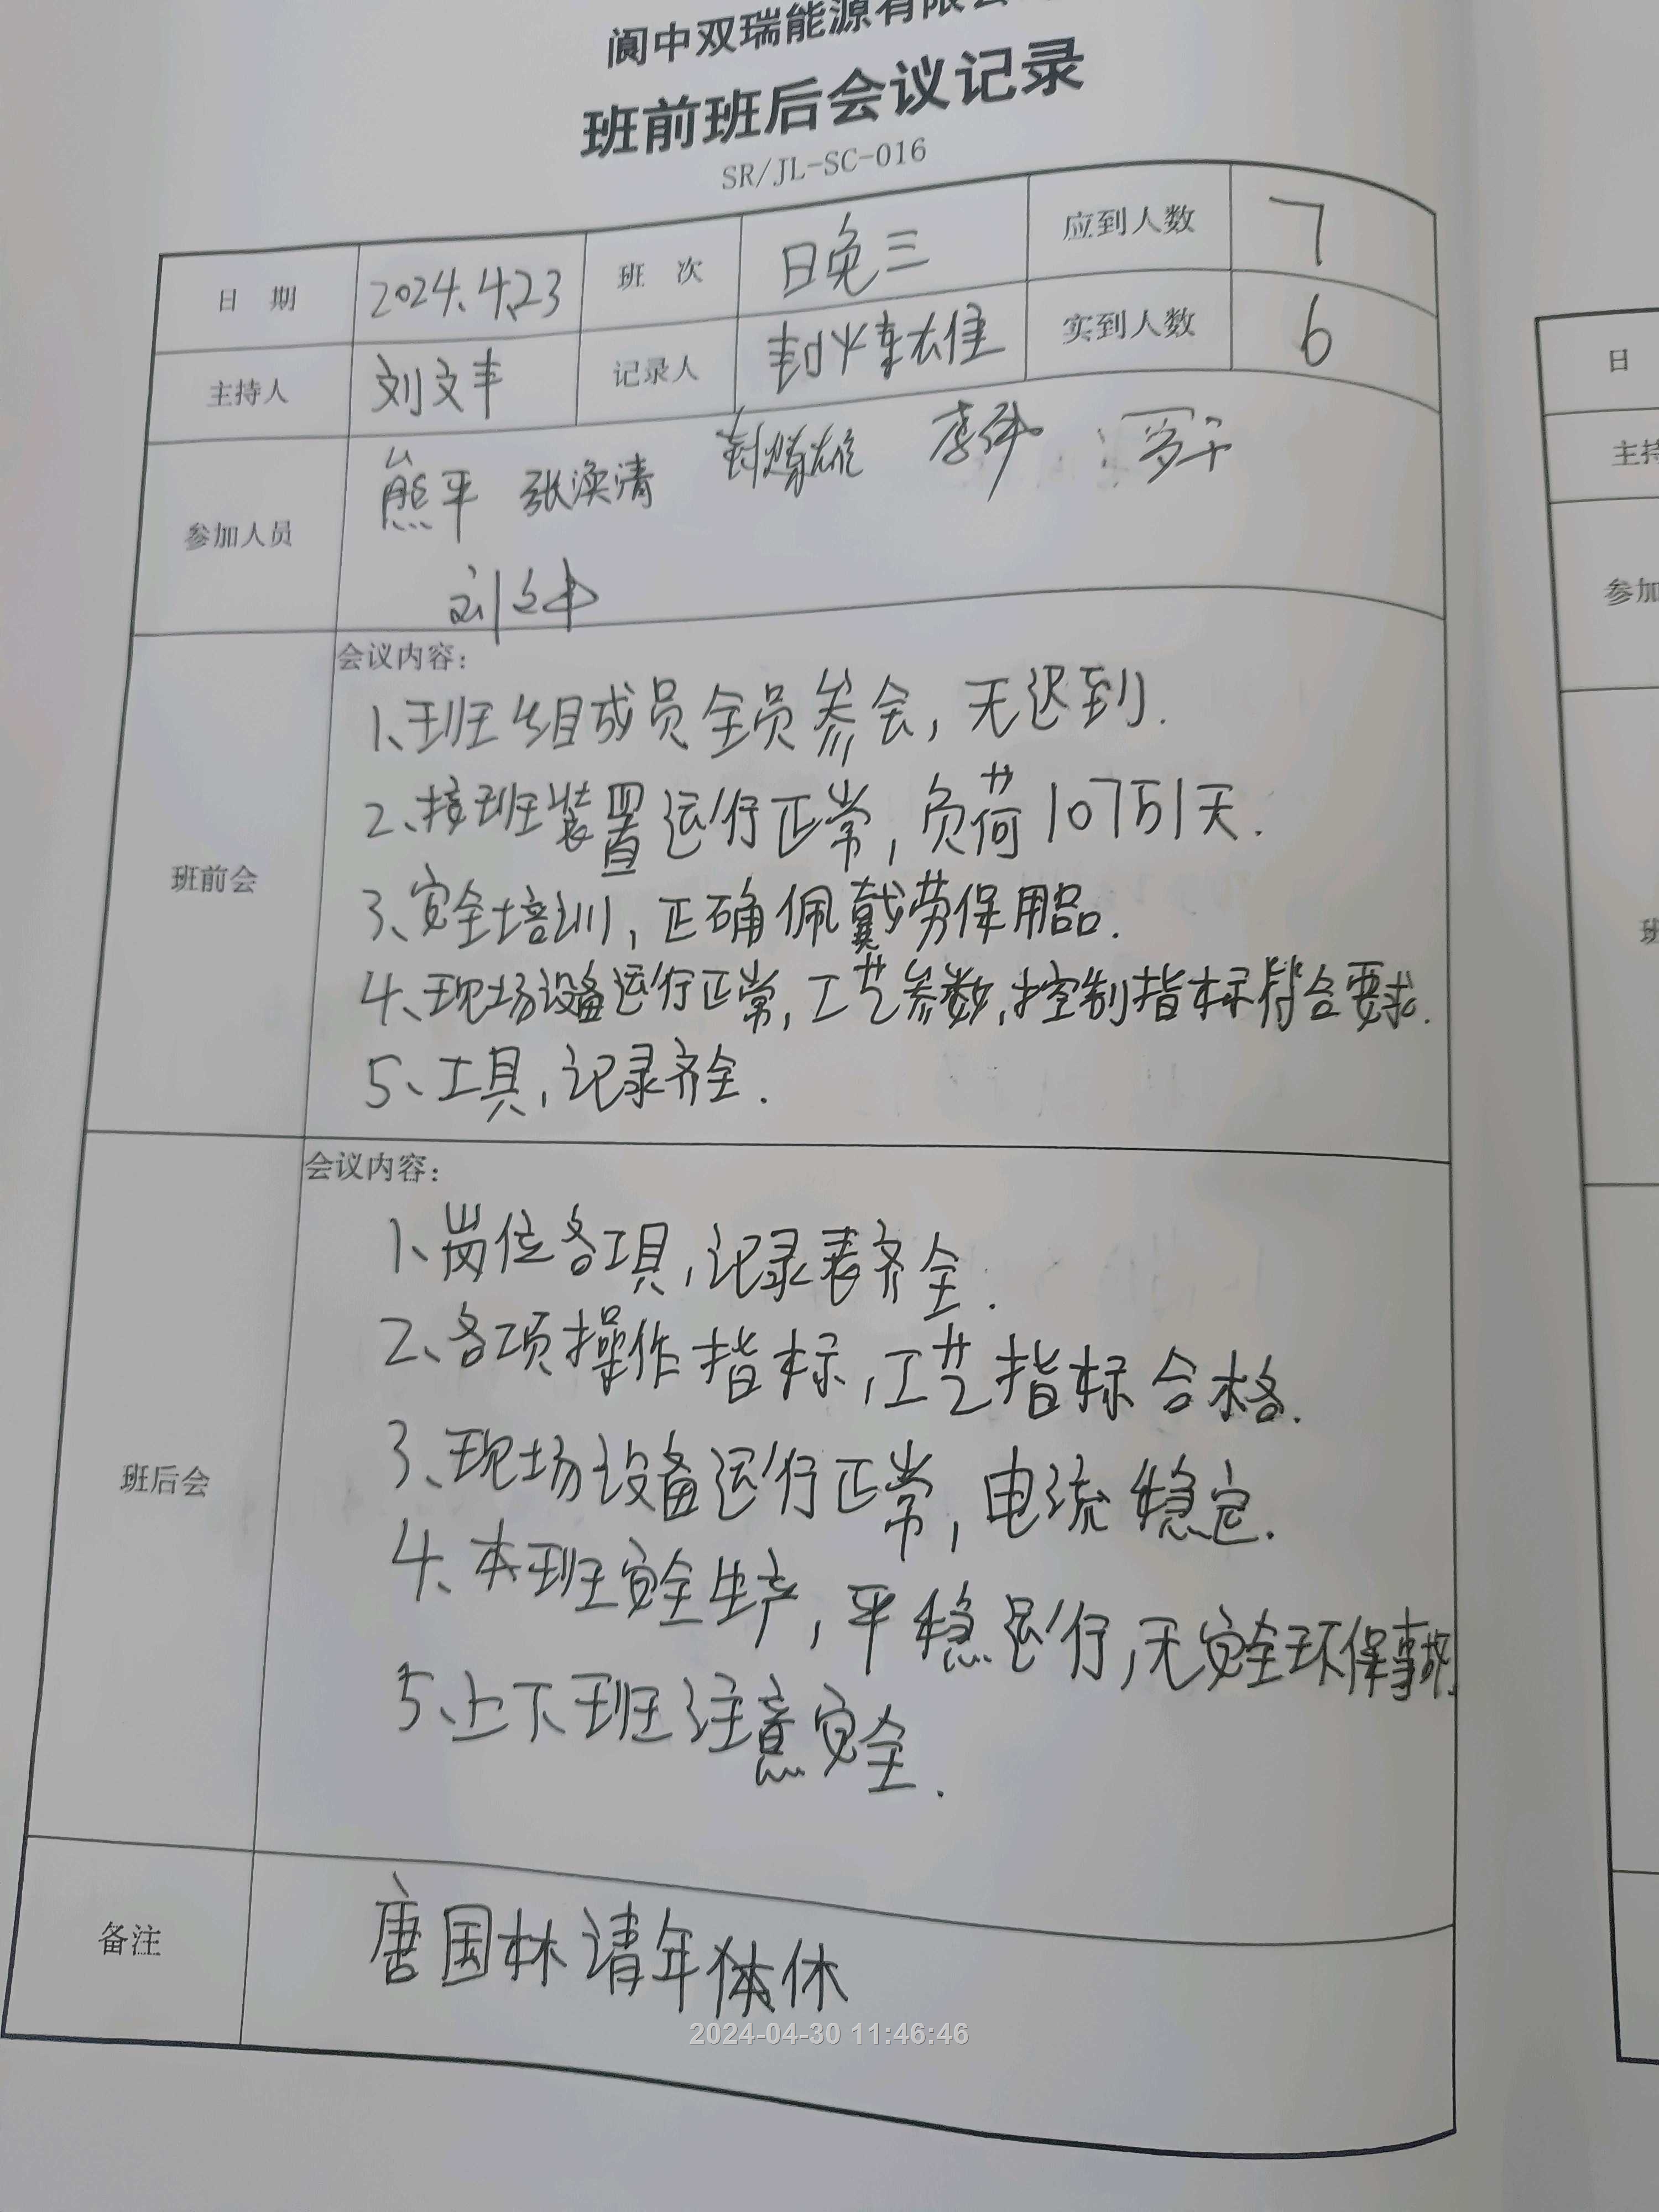 阆中双瑞能源有限公
班前班后会议记录
SR/JL-SC-016
日 期 2024.4.23 班 次 日晚三 应到人数 7
主持人 刘文丰 记录人 封 雄 实到人数 6
参加人员 熊平 张涣清 封 雄 李 罗干
刘文丰
班前会
会议内容:
1、班组成员全员参会,无迟到.
2、接班装置运行正常,负荷107万/天.
3、安全培训,正确佩戴劳保用品.
4、现场设备运行正常,工艺参数,控制指标符合要求.
5、工具,记录齐全.
班后会
会议内容:
1、岗位各项,记录表齐全.
2、各项操作指标,工艺指标合格.
3、现场设备运行正常,电流稳定.
4、本班安全生产,平稳运行,无安全环保事故
5、上下班注意安全.
备注 唐国林请年休
2024-04-30 11:46:46
日
主持
参加
班